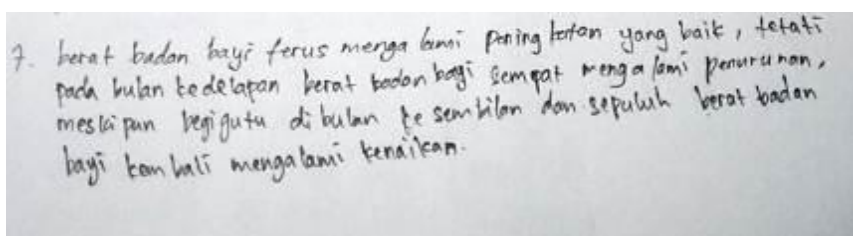 7. berat badan bayi terus menga lami pening katan yang baik, tetati
pada bulan kedelapan berat badan bayi sempat menga lami penurunan,
meski pun begigutu di bulan ke sembilan dan sepuluh berat badan
bayi kembali mengalami kenaikan.